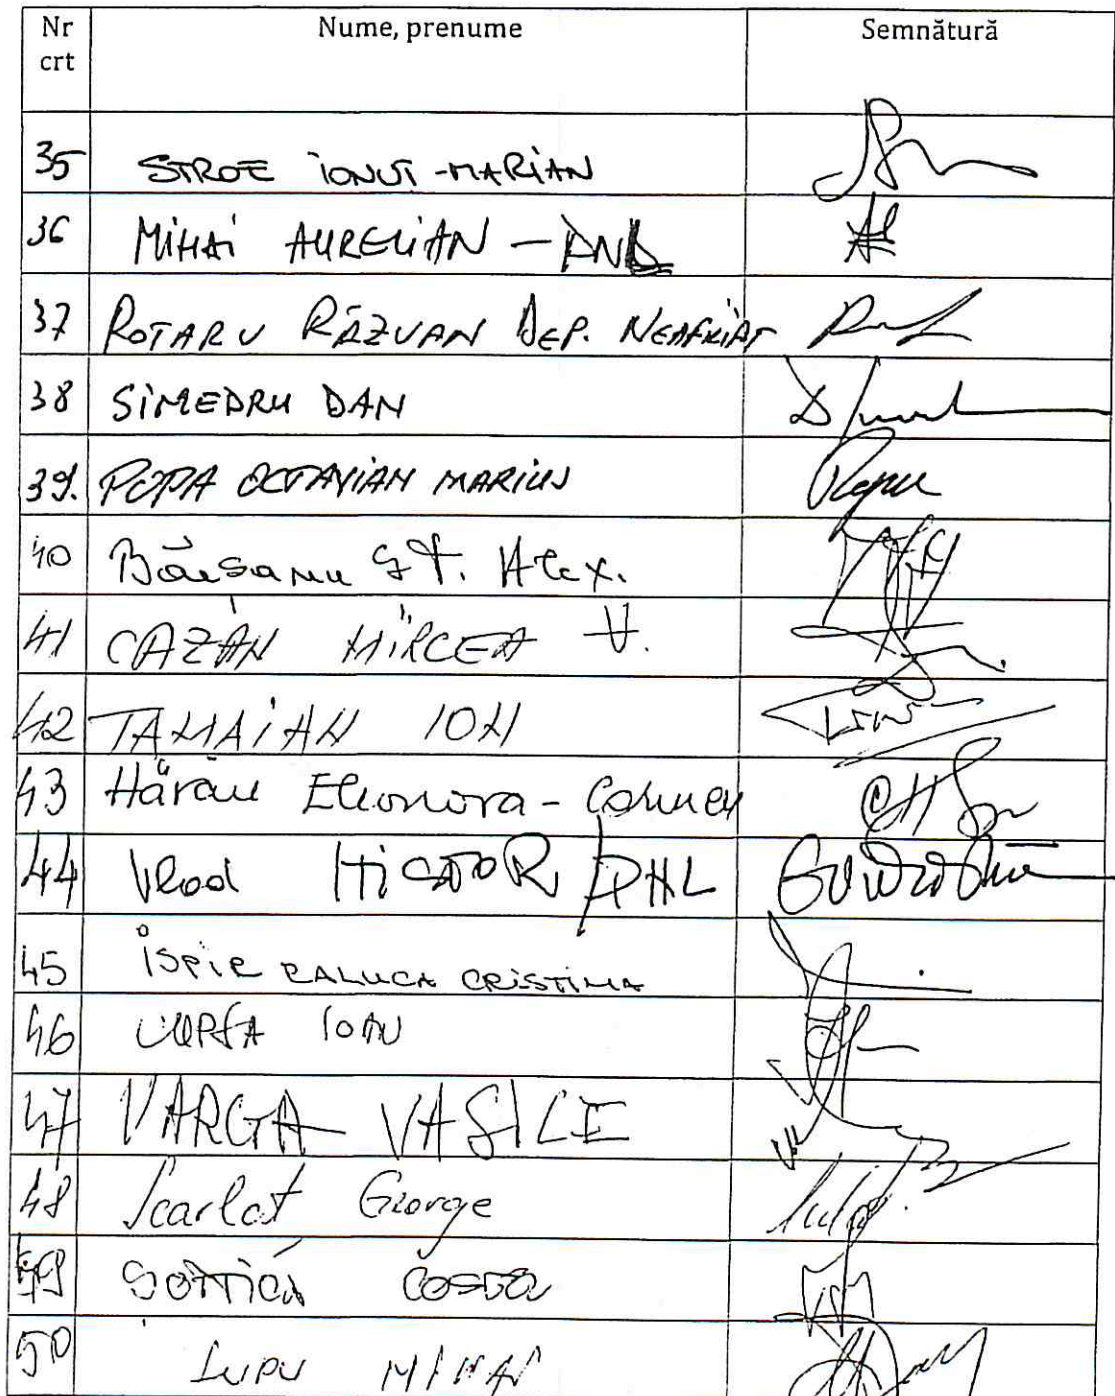 Nr crt Nume, prenume Semnătură
35 STROE IONUT-MARIAN
36 MIHAI AURELIAN -
37 ROTARU RĂZVAN DEP. NEAFILIAT
38 SIMEDRU DAN
39. POPA OCTAVIAN MARIUS
40 Băisanu Șt. Alex.
41 CAZAN MIRCEA V.
42 TAMAIAN ION
43 Hărău Eleonora-Carmen
44 Vlad /PNL
45 ISPIR RALUCA CRISTINA
46 CUPȘA IOAN
47 VARGA VASILE
48 Scarlat George
49
50 LUPU MIHAI